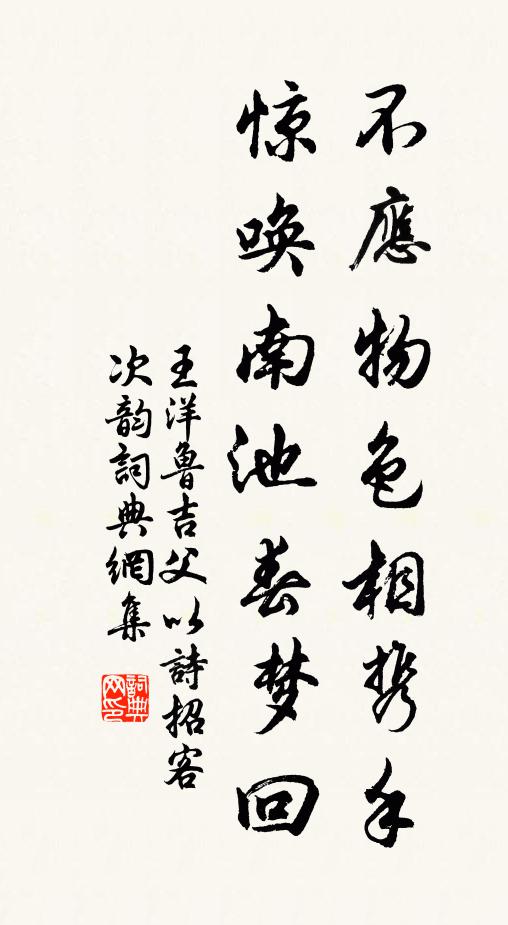 不應物色相携手
惊唤南池春梦回
王洋魯吉父以詩招客
次韵詞典網集
詞典网印